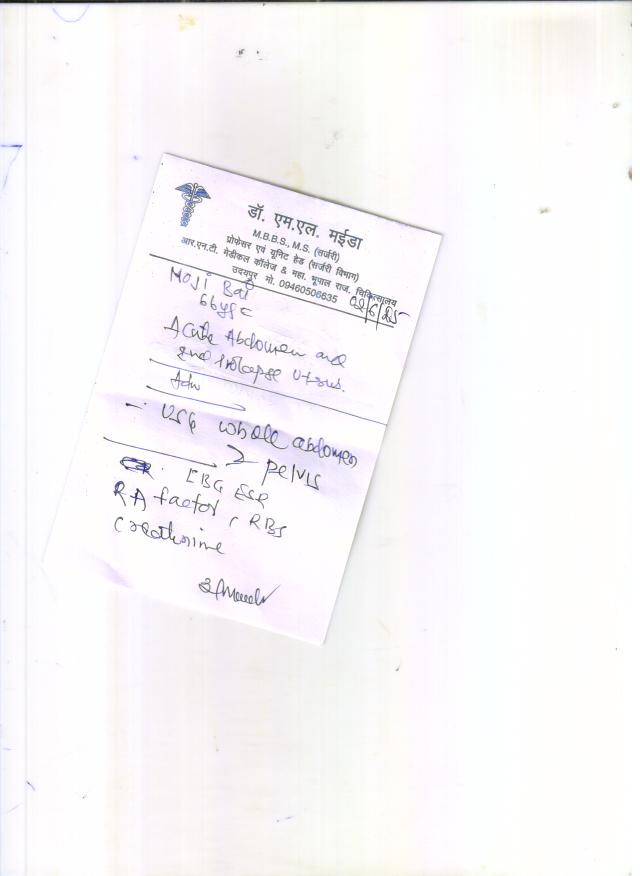 डॉ. एम.एल. मईडा
M.B.B.S., M.S. (सर्जरी)
प्रोफेसर एवं यूनिट हेड (सर्जरी विभाग)
आर.एन.टी. मेडीकल कॉलेज & महा. भूपाल राज. चिकित्सालय
उदयपुर मो. 09460506635
02/6/25
Moji Bai
66yf
Acute Abdomen and
prolapse Utrus.
Adv
- USG whole abdomen
pelvis
ESR
RA factor, RBS
Creatinine